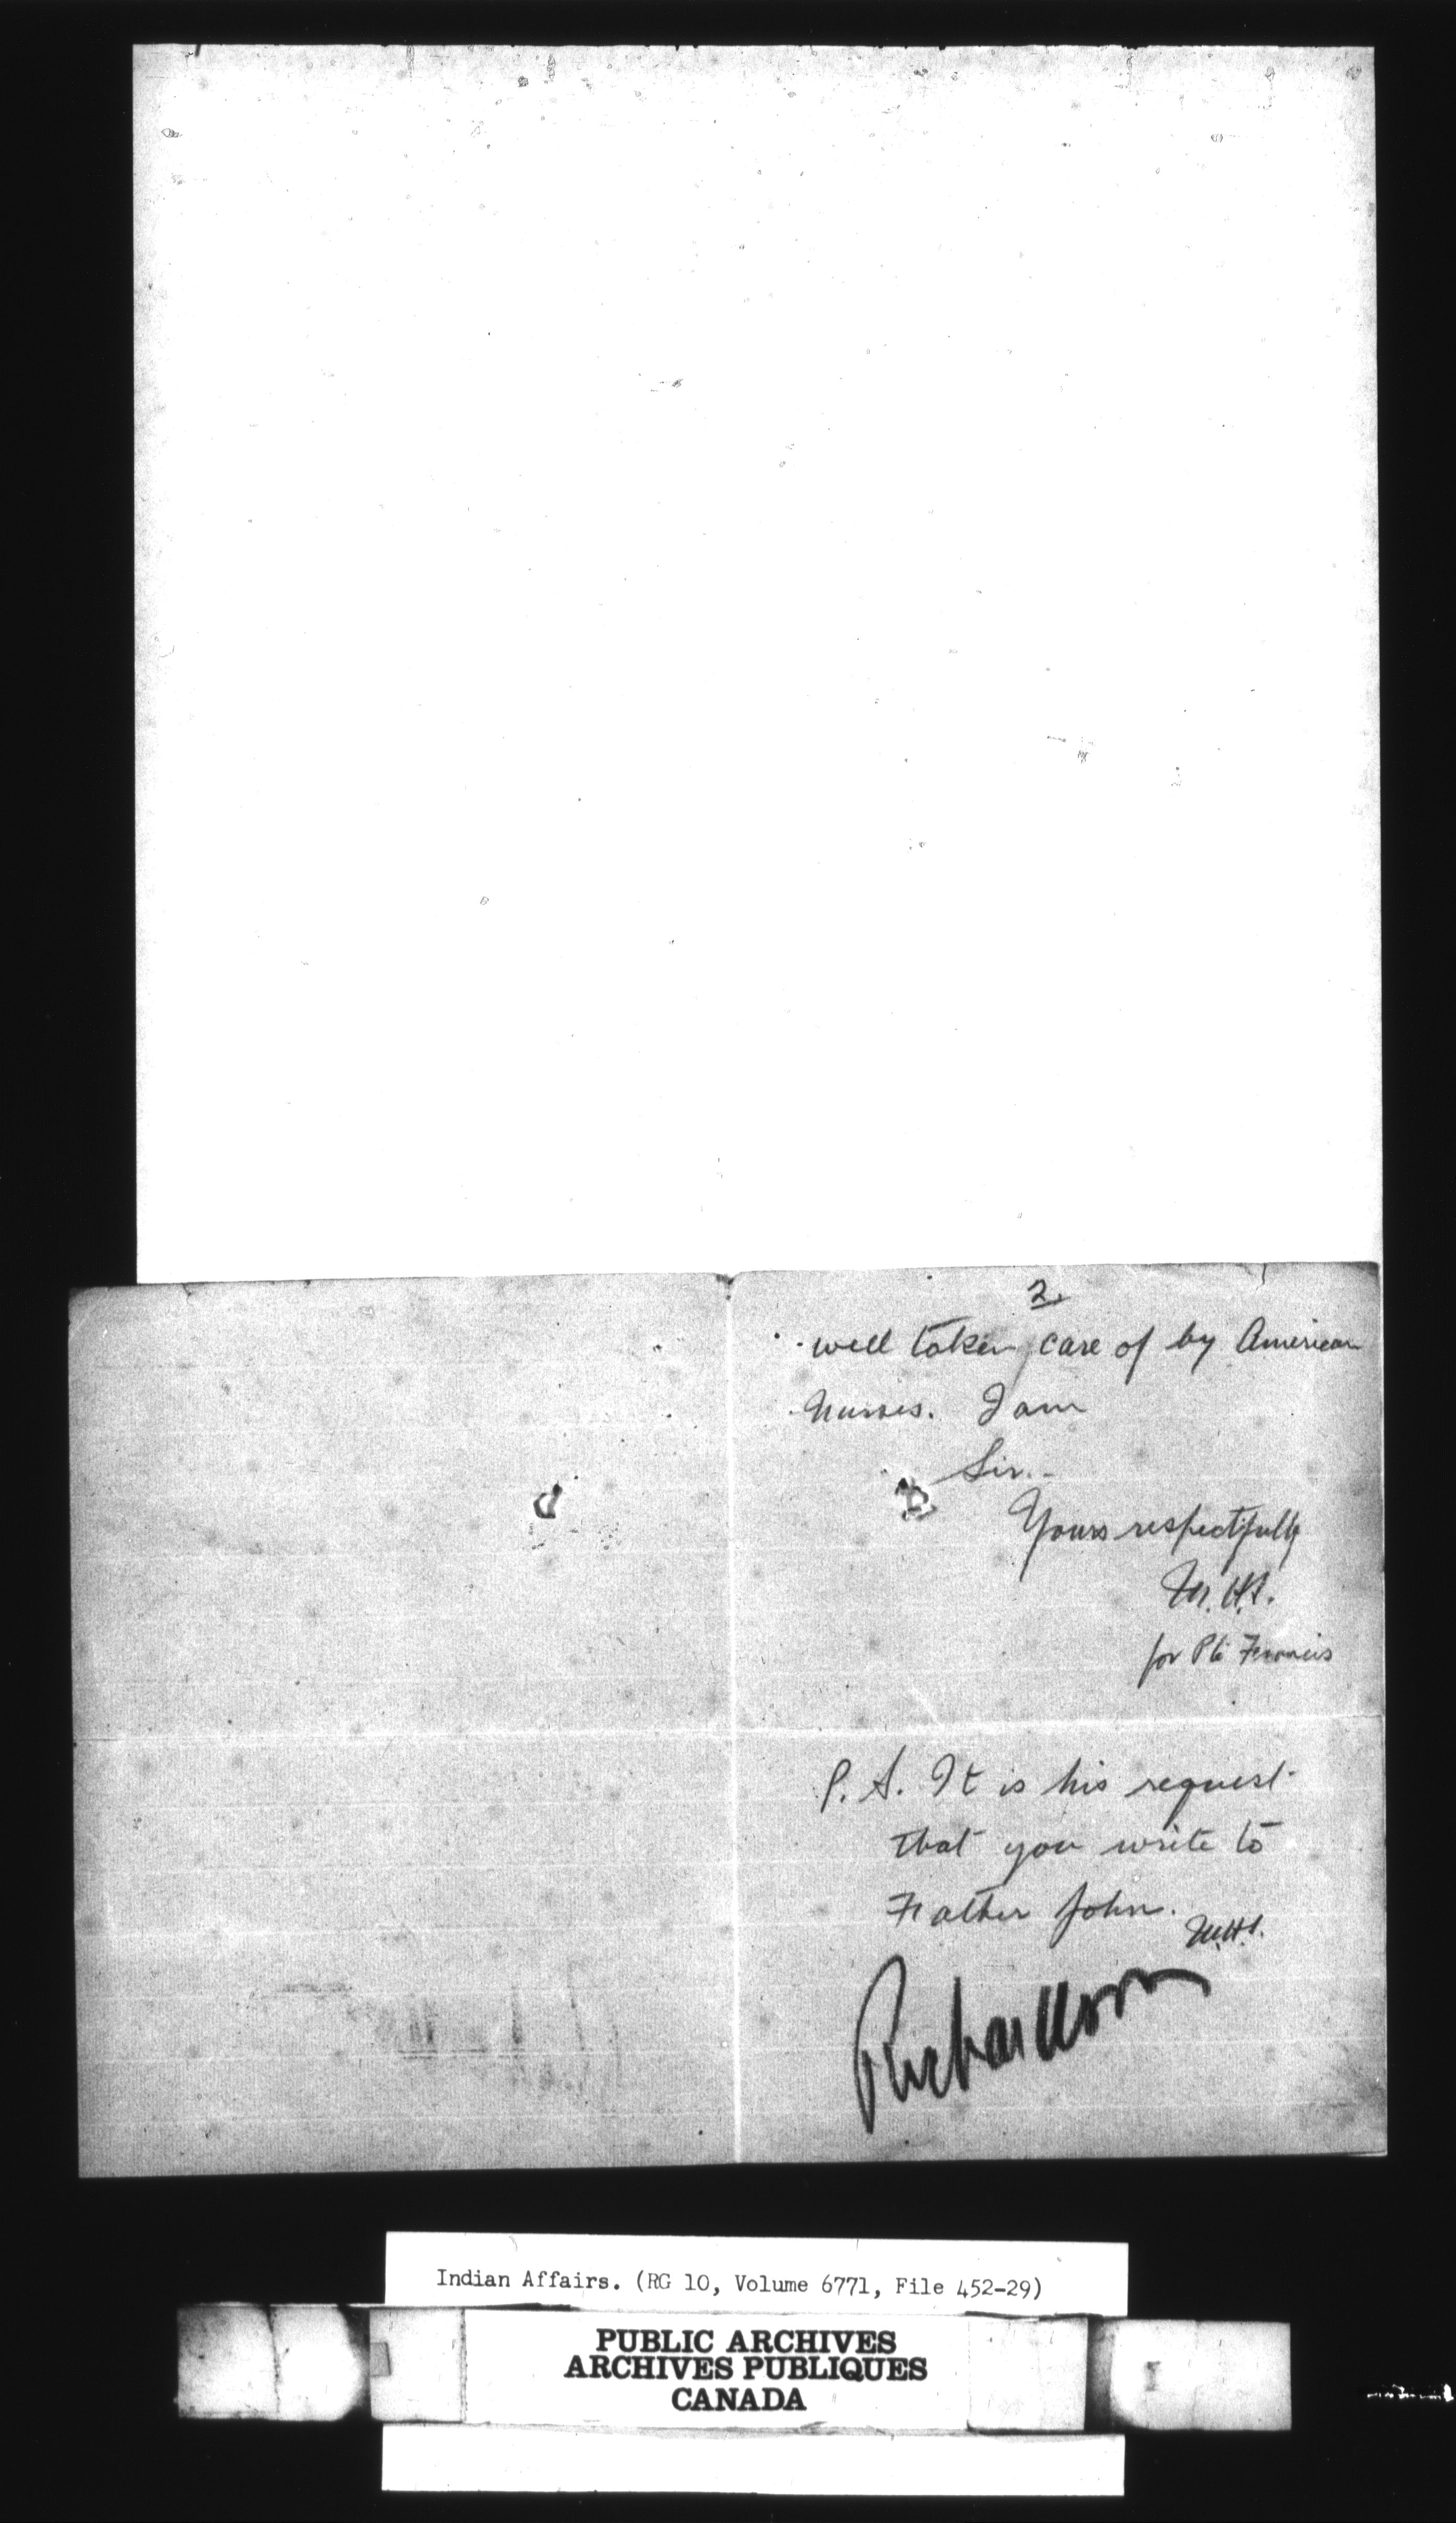 2.
well taken care of by American
Nurses. I am
Sir.-
Yours respectfully
M.H.S.
for Pte Francis
P.S. It is his request
that you write to
Father John.
M.H.S.
Indian Affairs. (RG 10, Volume 6771, File 452-29)
PUBLIC ARCHIVES
ARCHIVES PUBLIQUES
CANADA